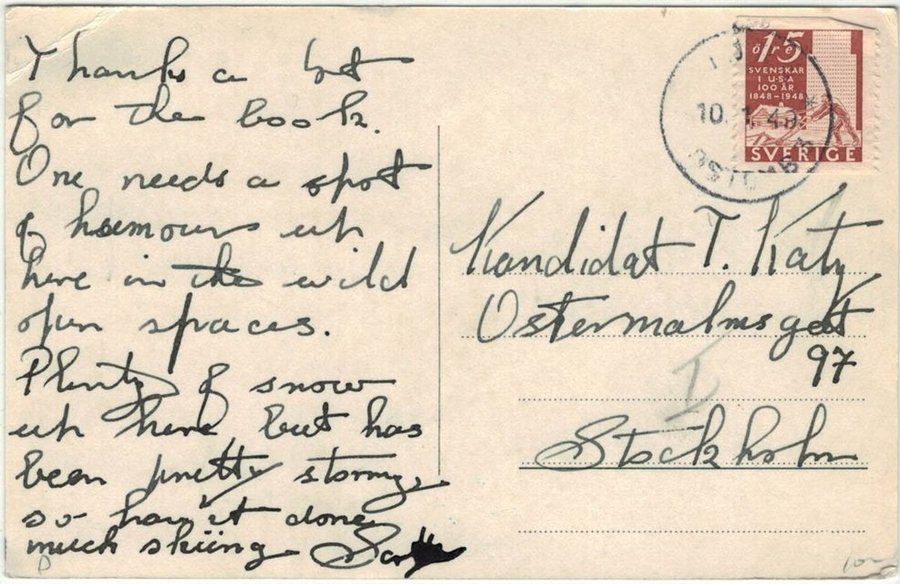 Thanks a lot
for the book.
One needs a spot
of humour up
here in the wild
open spaces.
Plenty of snow
up here but has
been pretty stormy,
so hav'it done
much skiing
15
öre
SVENSKAR
I USA
100 ÅR
1848-1948
SVERIGE
10. 1. 49
Kandidat T. Katz
Ostermalmsgat
97
I
Stockholm